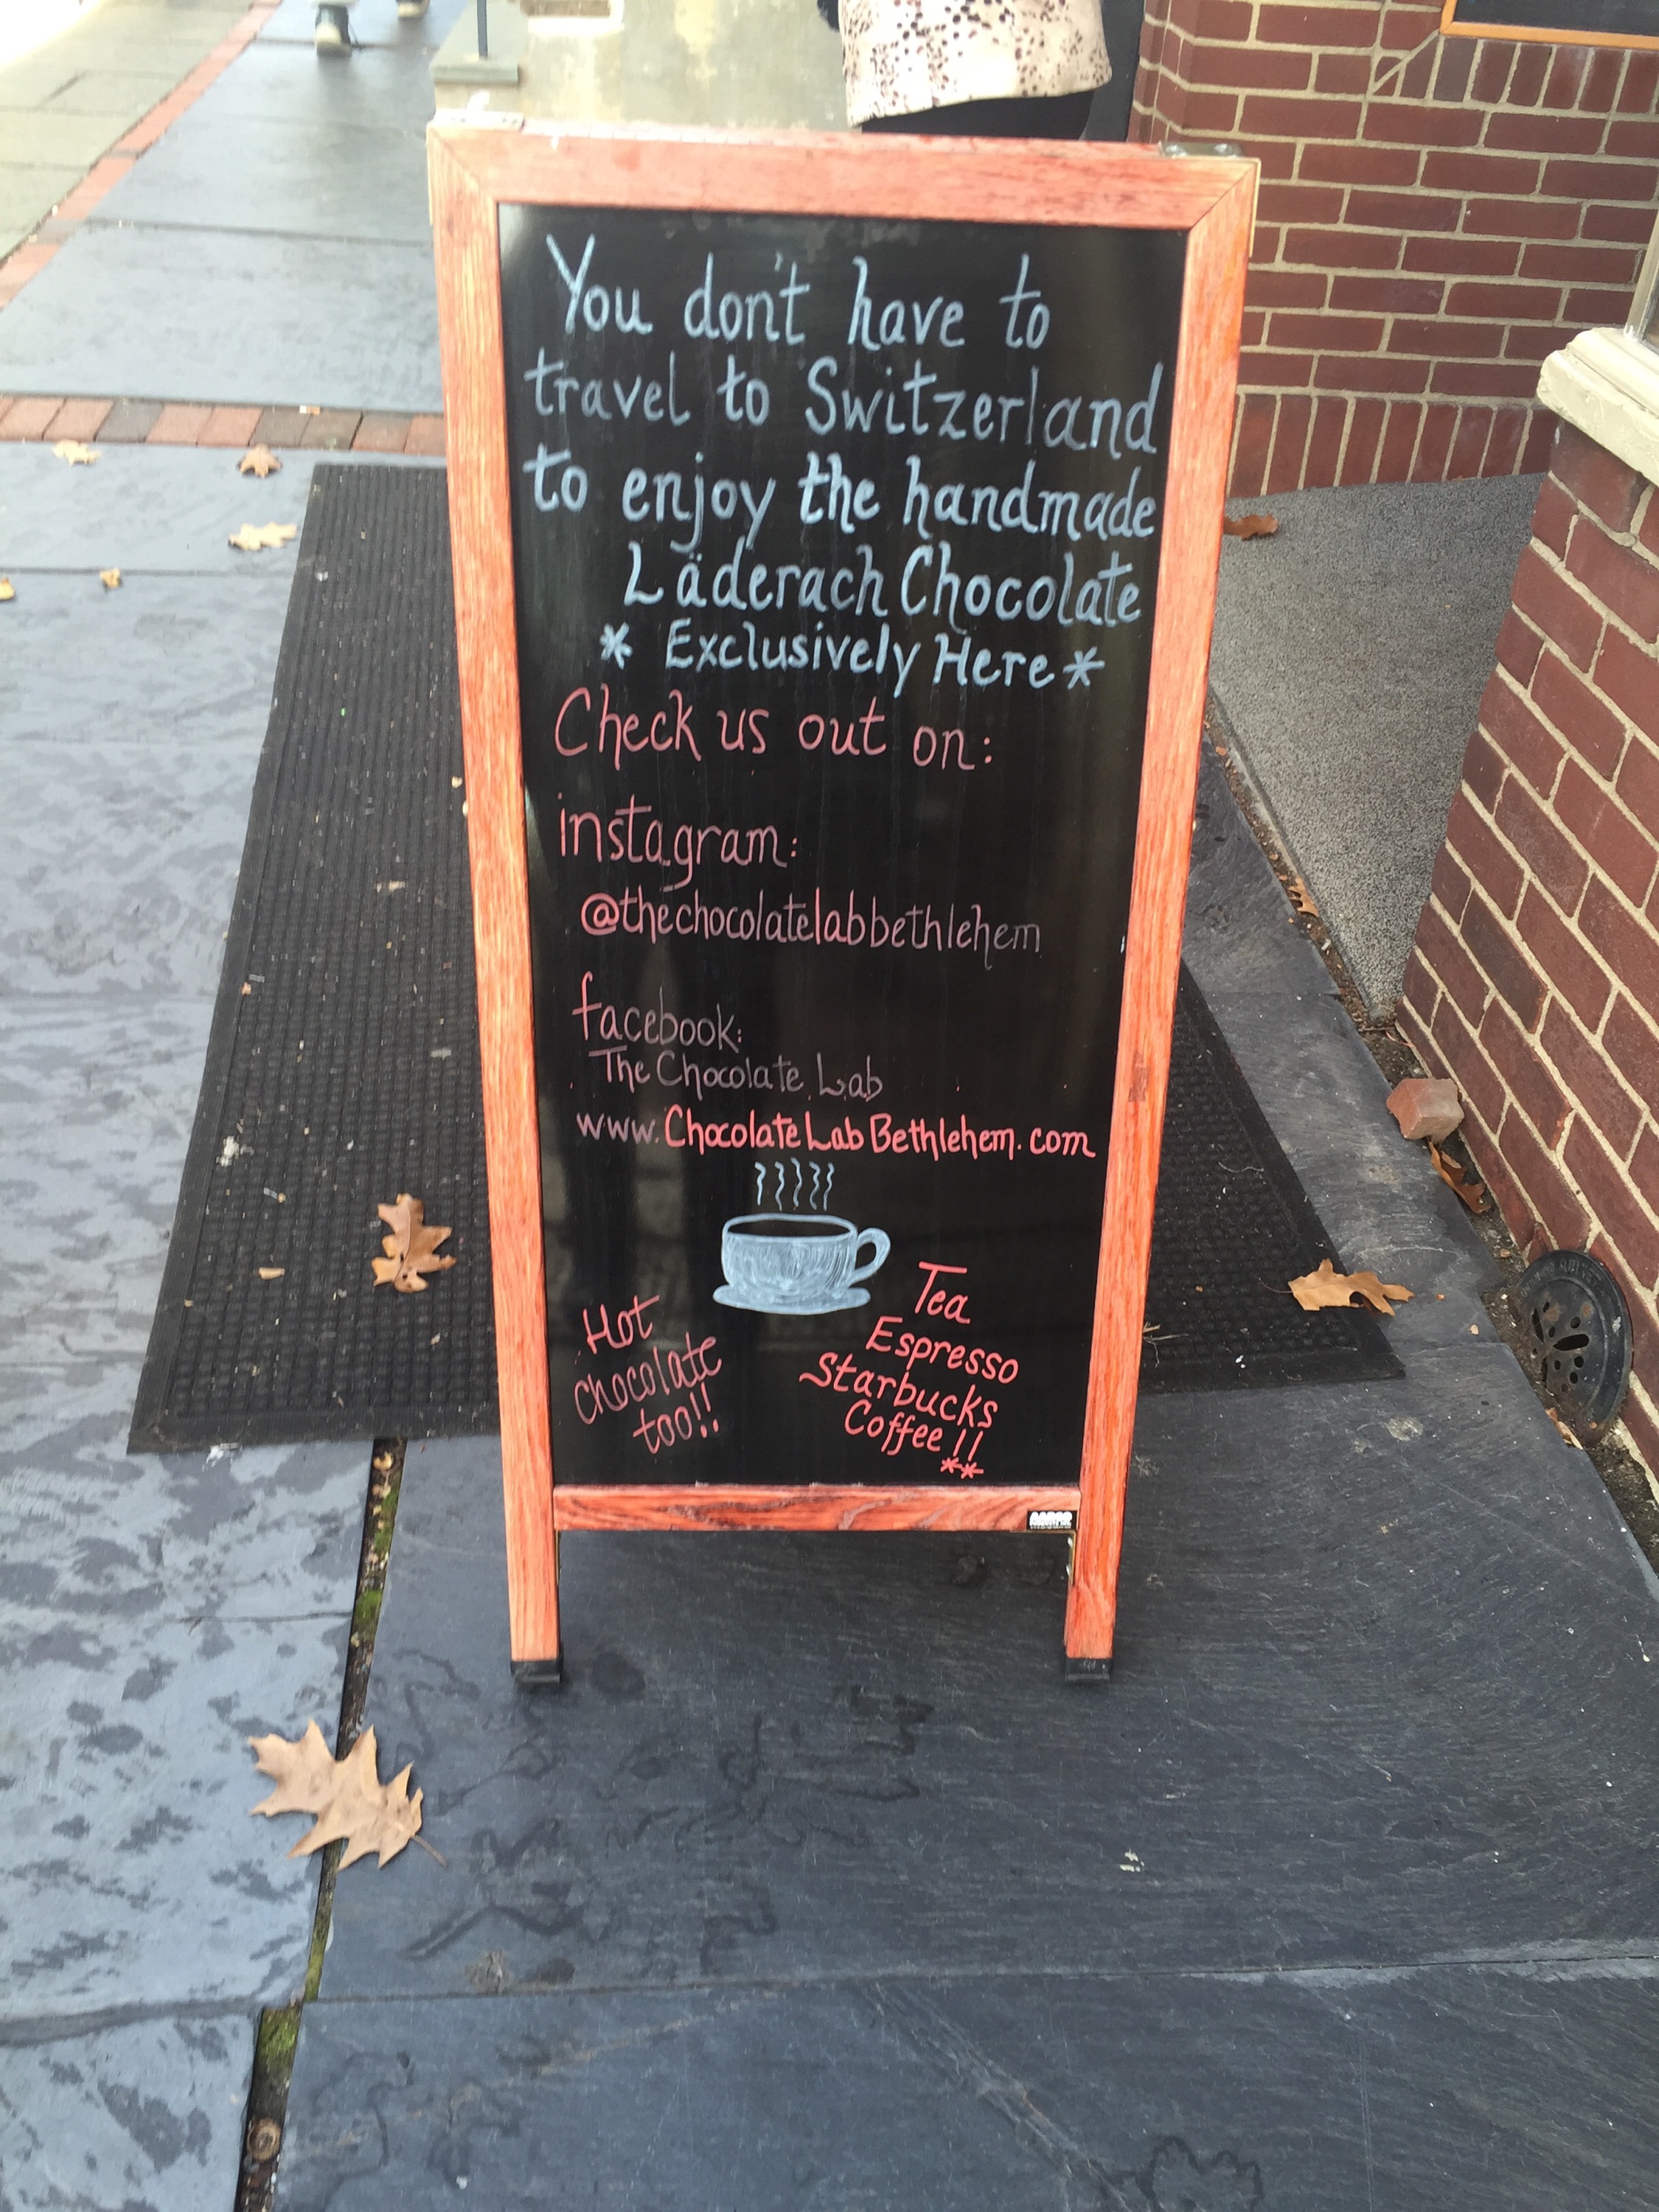 You don't have to
travel to Switzerland
to enjoy the handmade
Läderach Chocolate
* Exclusively Here *
Check us out on:
instagram:
@thechocolatelabbethlehem
facebook:
The Chocolate Lab
www.ChocolateLabBethlehem.com
Hot
chocolate
too!!
Tea
Espresso
Starbucks
Coffee!!
**